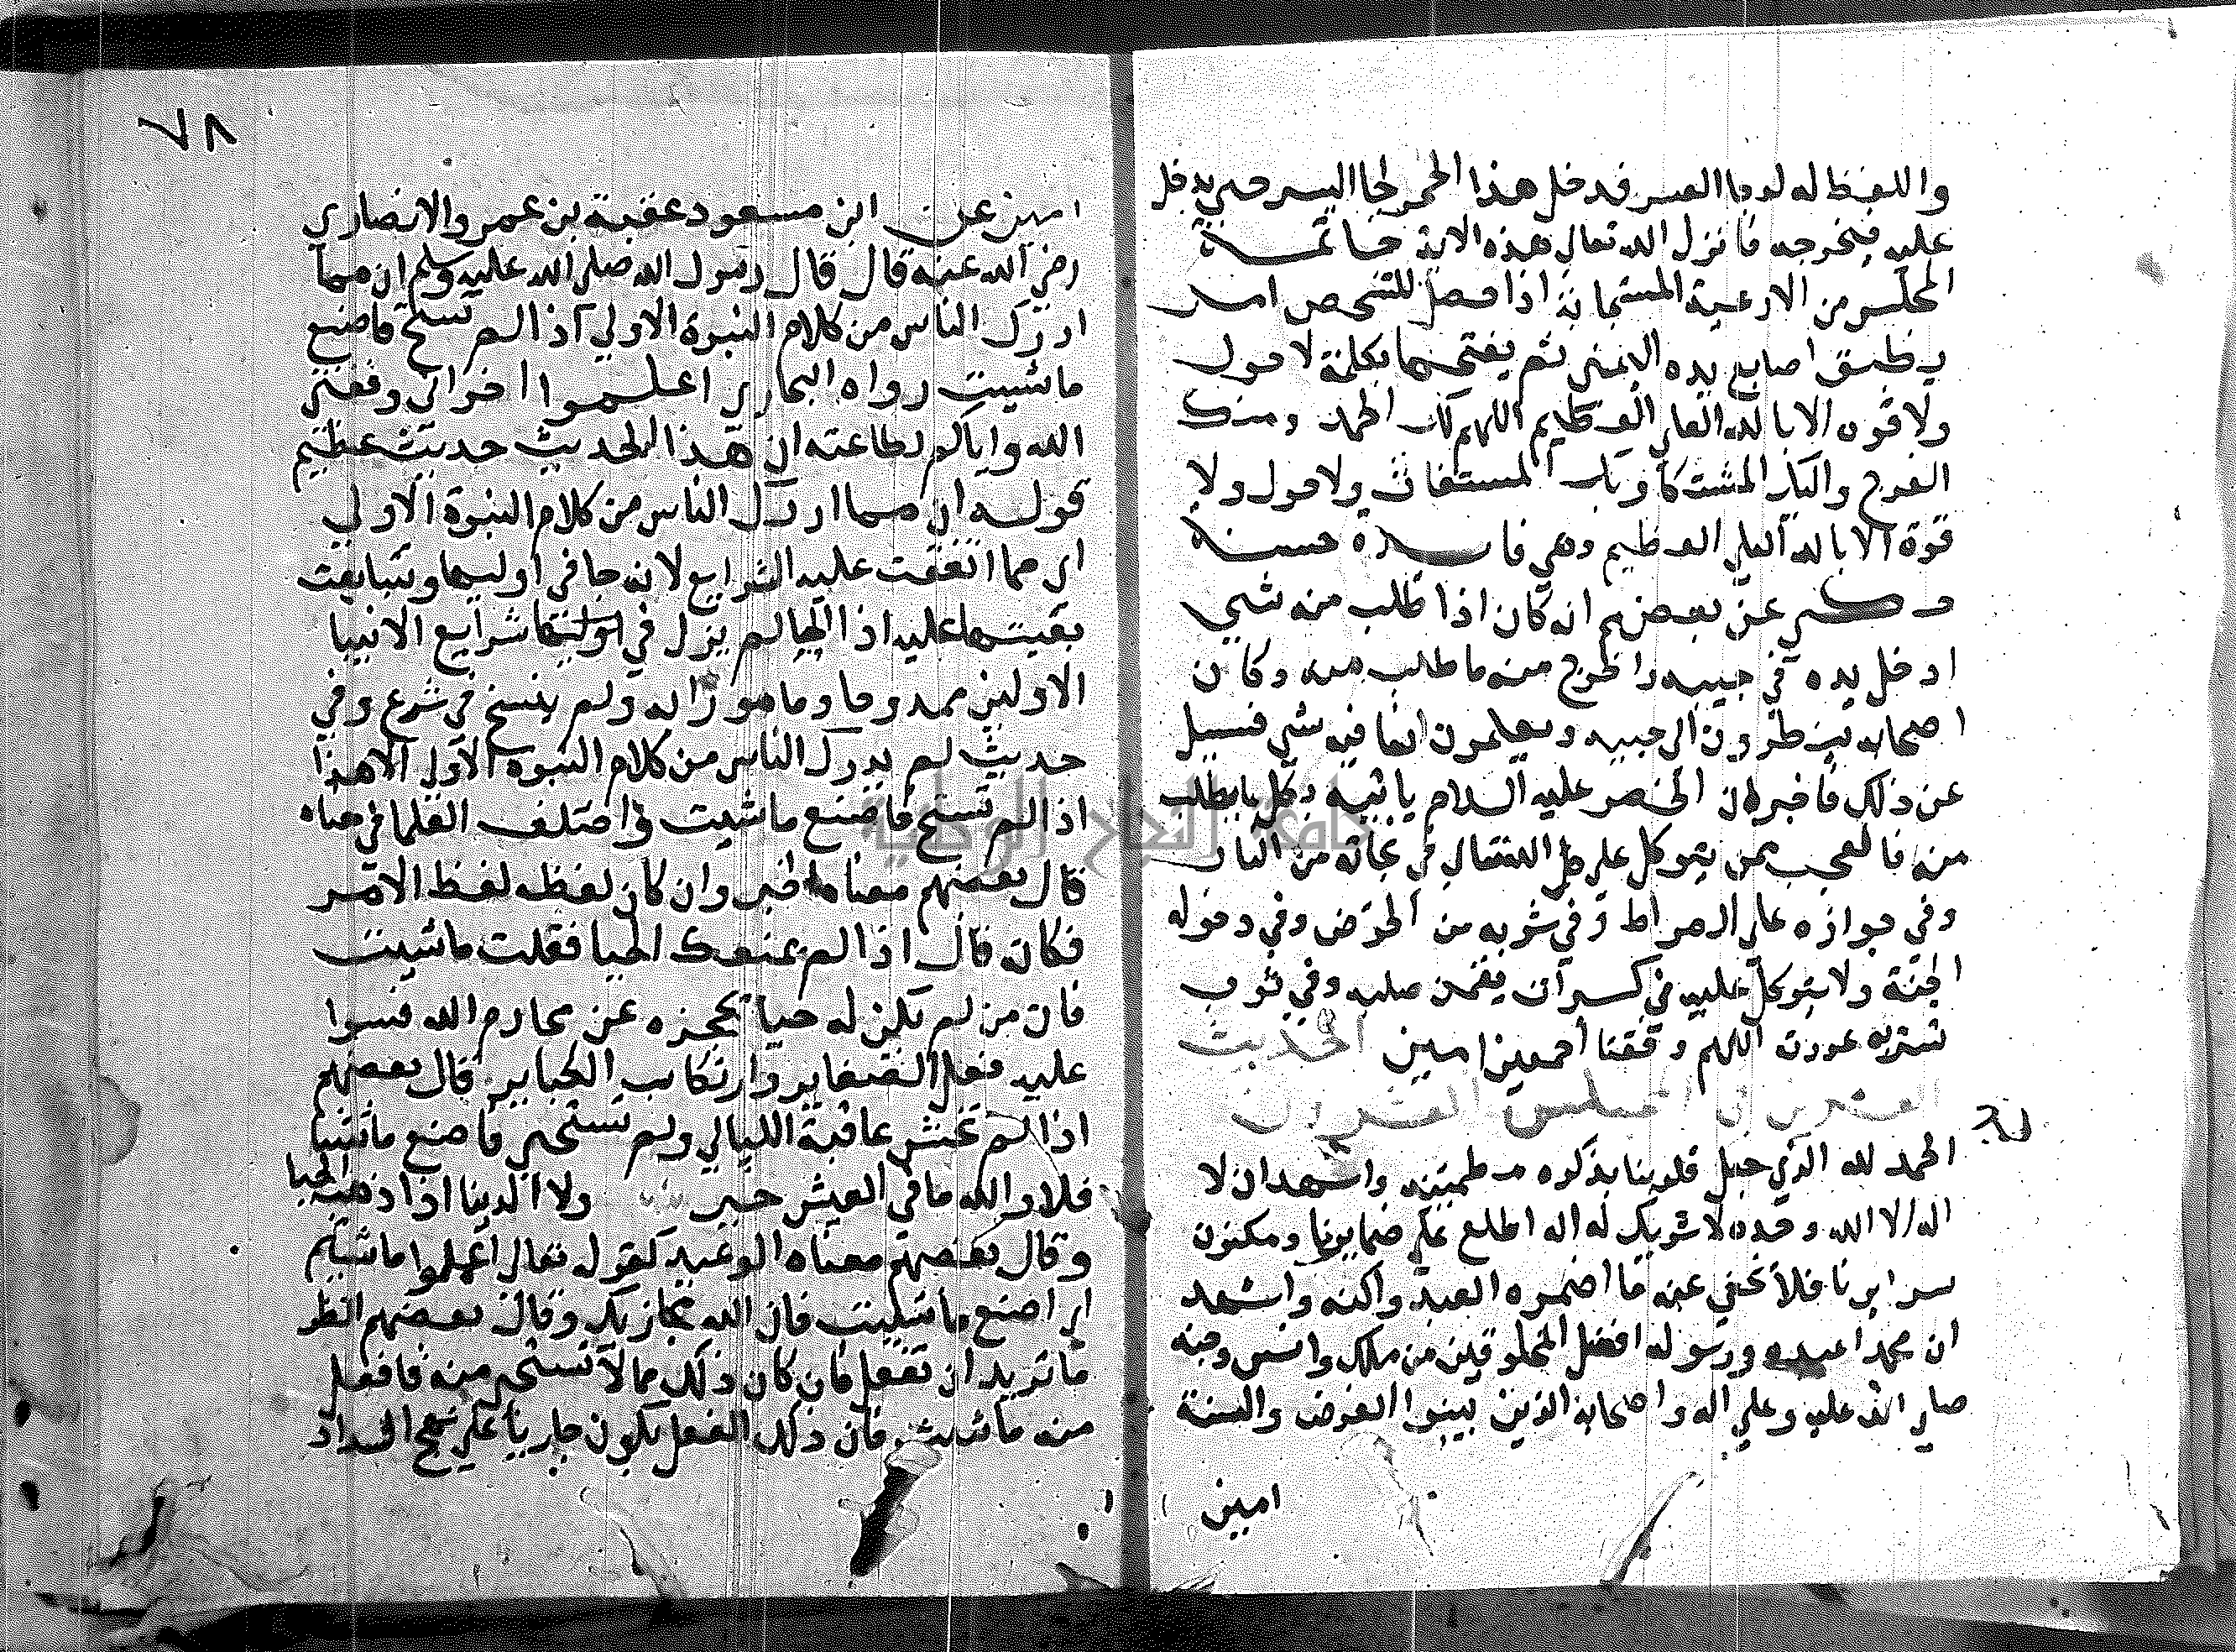 واللفظ له لو جا العسر فدخل هذا الحجر لجا اليسر حتي يدخل
عليه فيخرجه فانزل الله تعالي هذه الاية خاتمة
المجلس من الادعية المستجابة اذا حصل للشخص امر
يطبق اصابع يده اليمني ثم يفتحها بكلمة لا حول
ولا قوة الا بالله العلي العظيم اللهم لك الحمد ومنك
الفرج واليك المشتكا وبك المستغاث ولا حول ولا
قوة الا بالله العلي العظيم وهي فايدة حسنة
وحكي عن بعضهم انه كان اذا طلب منه شي
ادخل يده في جيبه واخرج منه ما طلب منه وكان
اصحابه ينظرون الي جيبه ويعلمون انما فيه شي فسيل
عن ذلك فاخبر ان الخضر عليه السلام ياتيه بكل ما يطلب
منه فالعجب ممن يتوكل علي الله تعالي في نجاته من النار
وفي جوازه علي الصراط وفي شربه من الحوض وفي دخوله
الجنة ولا يتوكل عليه في كسرات يقمن صلبه وفي ثوب
يستر به عورته اللهم وفقنا اجمعين امين الحديث
العشرين في المجلس العشرون
الحمد لله الذي جعل قلوبنا بذكره مطمينه واشهد ان لا
اله الا الله وحده لا شريك له اله اطلع علي ضمايرنا ومكنون
سرايرنا فلا يخفي عنه ما اضمره العبد واكنه واشهد
ان محمدا عبده ورسوله افضل المخلوقين من ملك وانس وجنه
صلي الله عليه وعلي اله واصحابه الذين بينوا الفرض والسنة
امين
٧٨
امين عن ابن مسعود عقبة بن عمرو الانصاري
رضي الله عنه قال قال رسول الله صلي الله عليه وسلم ان مما
ادرك الناس من كلام النبوة الاولي اذا لم تستح فاصنع
ما شيت رواه البخاري اعلموا اخواني وفقني
الله واياكم لطاعته ان هذا الحديث حديث عظيم
قوله ان مما ادرك الناس من كلام النبوة الاولي
اي مما اتفقت عليه الشرايع لانه جا في اوليها وتتابعت
بقيتها عليه اذا الحيا لم يزل في اوليتها شرايع الانبيا
الاولين ممدوحا ومامورا به ولم ينسخ في شرع وفي
حديث لم يدرك الناس من كلام النبوة الاولي الا هذا
اذا لم تستح فاصنع ما شيت واختلف العلما في معناه
قال بعضهم معناه خبر وان كان لفظه لفظ الامر
فكانه قال اذا لم يمنعك الحيا فعلت ما شيت
فان من لم تكن له حيا يحجزه عن محارم الله فسوا
عليه فعل الصغاير وارتكاب الكباير قال بعضهم
اذا لم تخش عاقبة الليالي ولم تستحي فاصنع ما تشا
فلا والله ما في العيش خير ولا الدنيا اذا ذهب الحيا
وقال بعضهم معناه الوعيد كقوله تعالي اعملوا ما شيتم
اي اصنع ما شيت فان الله مجازيك وقال بعضهم انظر
ما تريد ان تفعل فان كان ذلك مما لا تستحي منه فافعل
منه ما شيت فان ذلك الفعل يكون جاريا علي نهج السداد
جامعة النجاح الوطنية